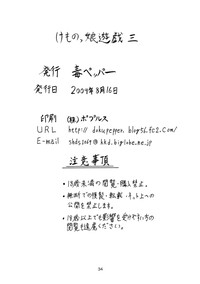 けもの。娘遊戯 三
発行 毒ペッパー
発行日 2009年8月16日
印刷 (株)ポプルス
URL http://dokupepper.blog56.fc2.com/
E-mail shds2569@kkd.biglobe.ne.jp
注意事項
・18歳未満の閲覧・購入禁止。
・無断での複製・転載・ネット上への
公開を禁止します。
・18歳以上でも影響を受けやすい方の
閲覧も遠慮ください。
34